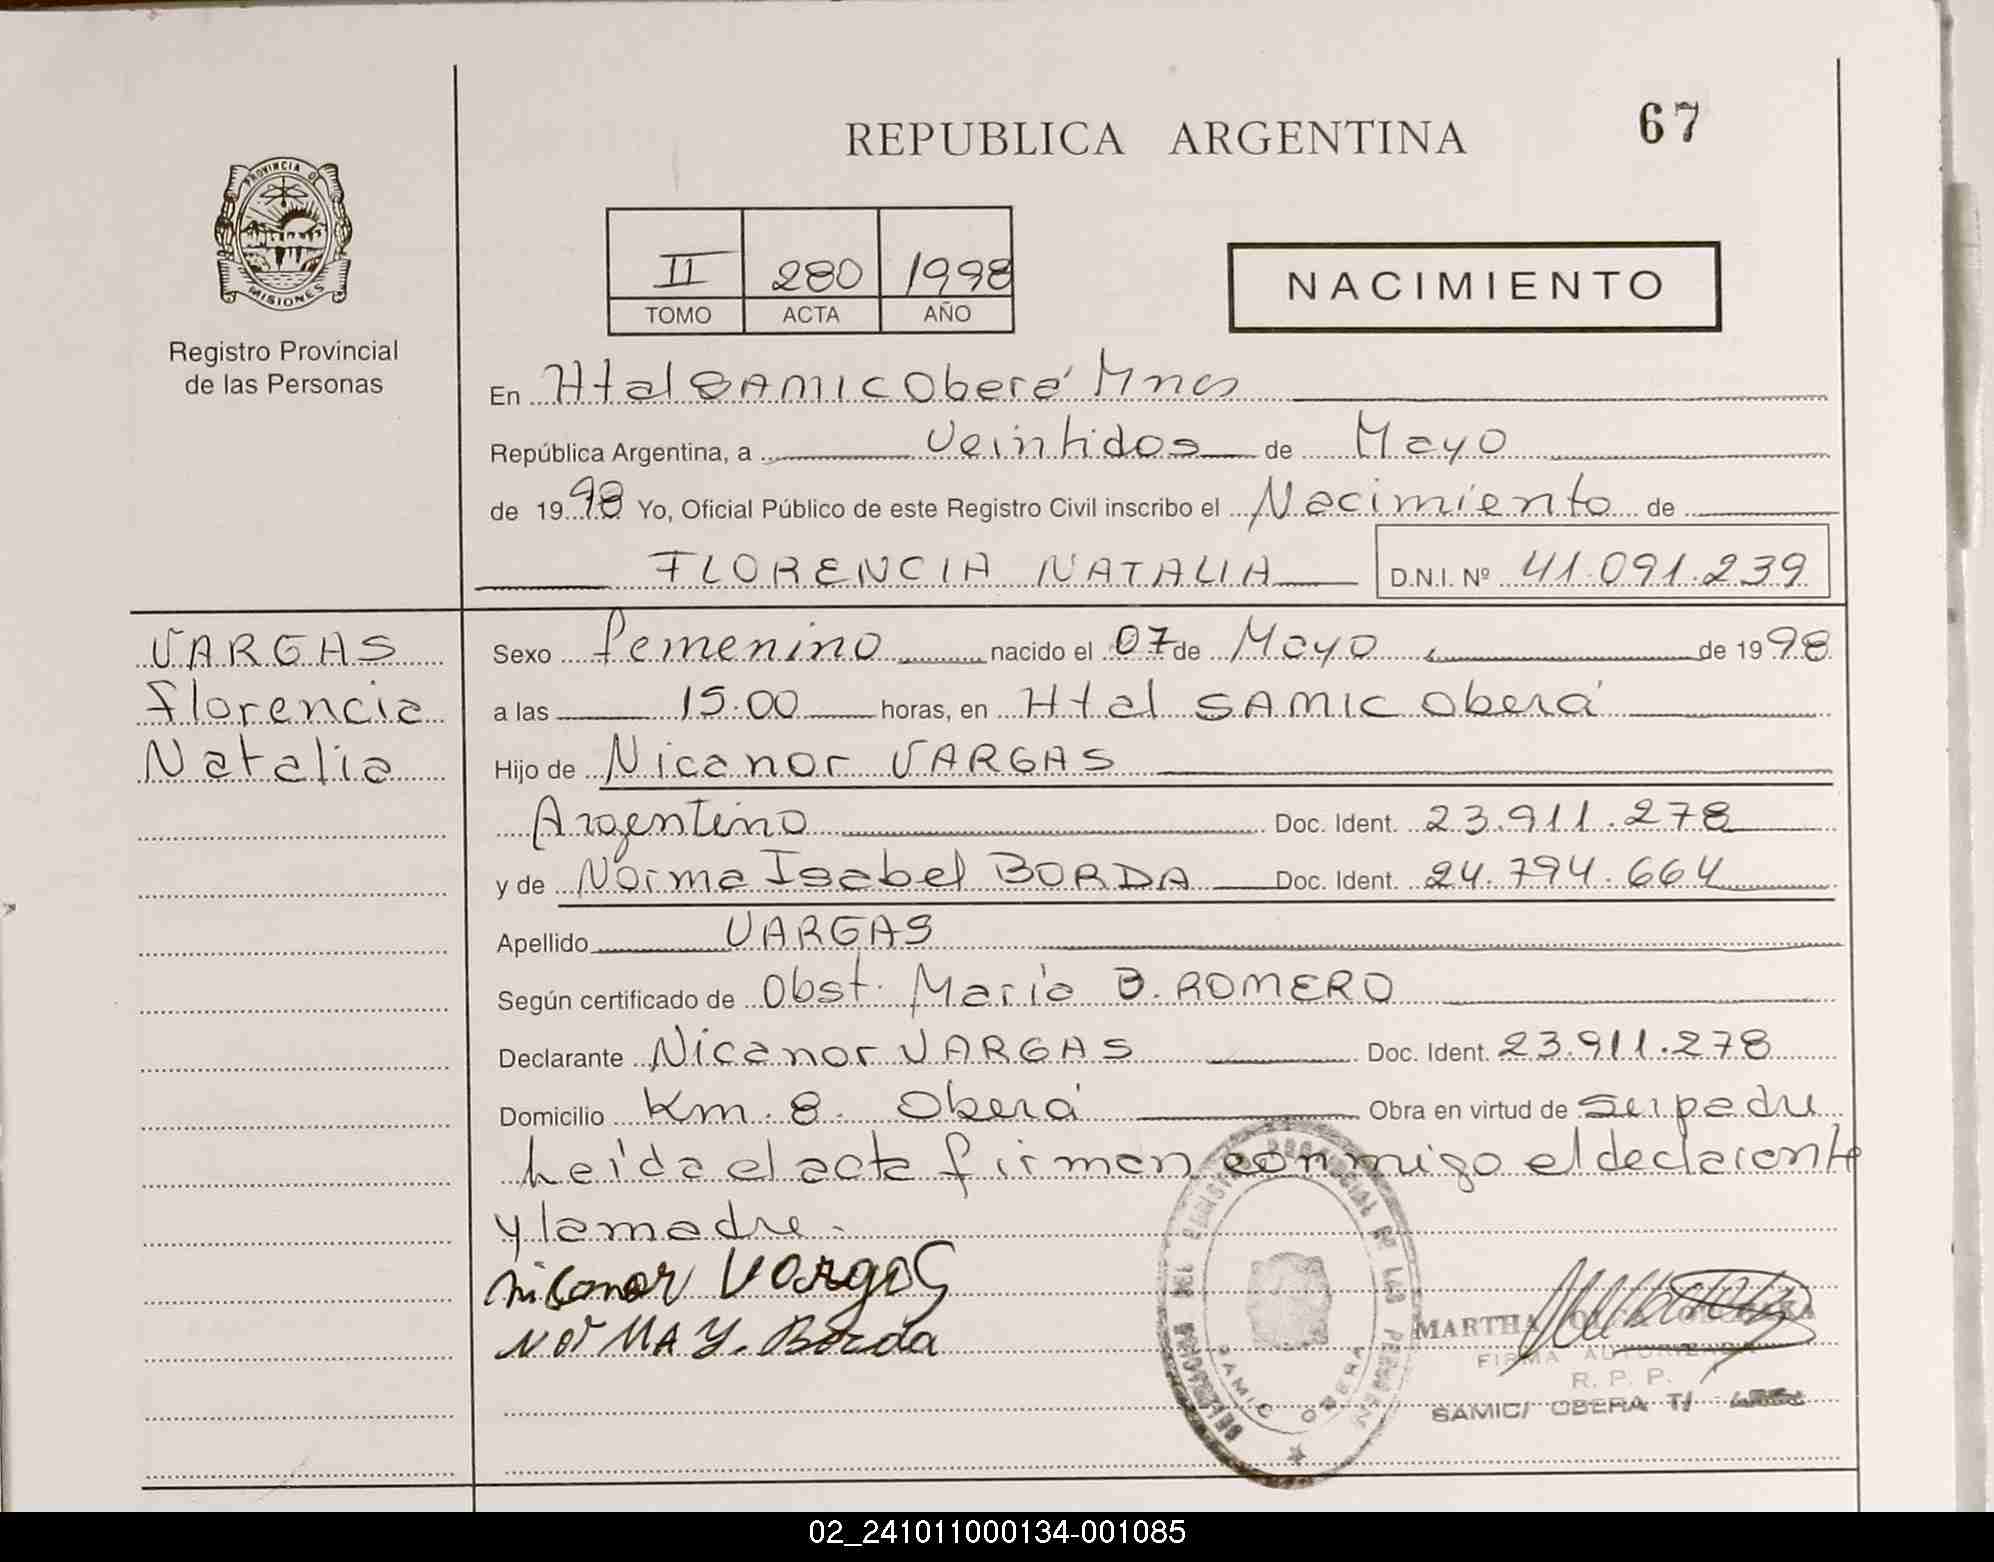 REPUBLICA ARGENTINA
67
PROVINCIA D
MISIONES
Registro Provincial
de las Personas
II 280 1998
TOMO ACTA AÑO
NACIMIENTO
En Htal SAMIC Oberá Mnes
República Argentina, a Veintidos de Mayo
de 1998 Yo, Oficial Público de este Registro Civil inscribo el Nacimiento de
FLORENCIA NATALIA D.N.I. Nº 41.091.239
VARGAS
Florencia
Natalia
Sexo femenino nacido el 07 de Mayo de 1998
a las 15.00 horas, en Htal SAMIC Oberá
Hijo de Nicanor VARGAS
Argentino Doc. Ident. 23.911.278
y de Norma Isabel BORDA Doc. Ident. 24.794.664
Apellido VARGAS
Según certificado de Obst. María B. ROMERO
Declarante Nicanor VARGAS Doc. Ident. 23.911.278
Domicilio Km. 8. Oberá Obra en virtud de ser padre
Leída el acta firman conmigo el declarante
y la madre.
nicanor Vargas
NorMA Y. Borda
REGISTRO PROVINCIAL DE LAS PERSONAS
SAMIC OBERA
MARTHA
FIRMA AUTORIZADA
R. P. P.
SAMIC/ OBERA T/
02_241011000134-001085